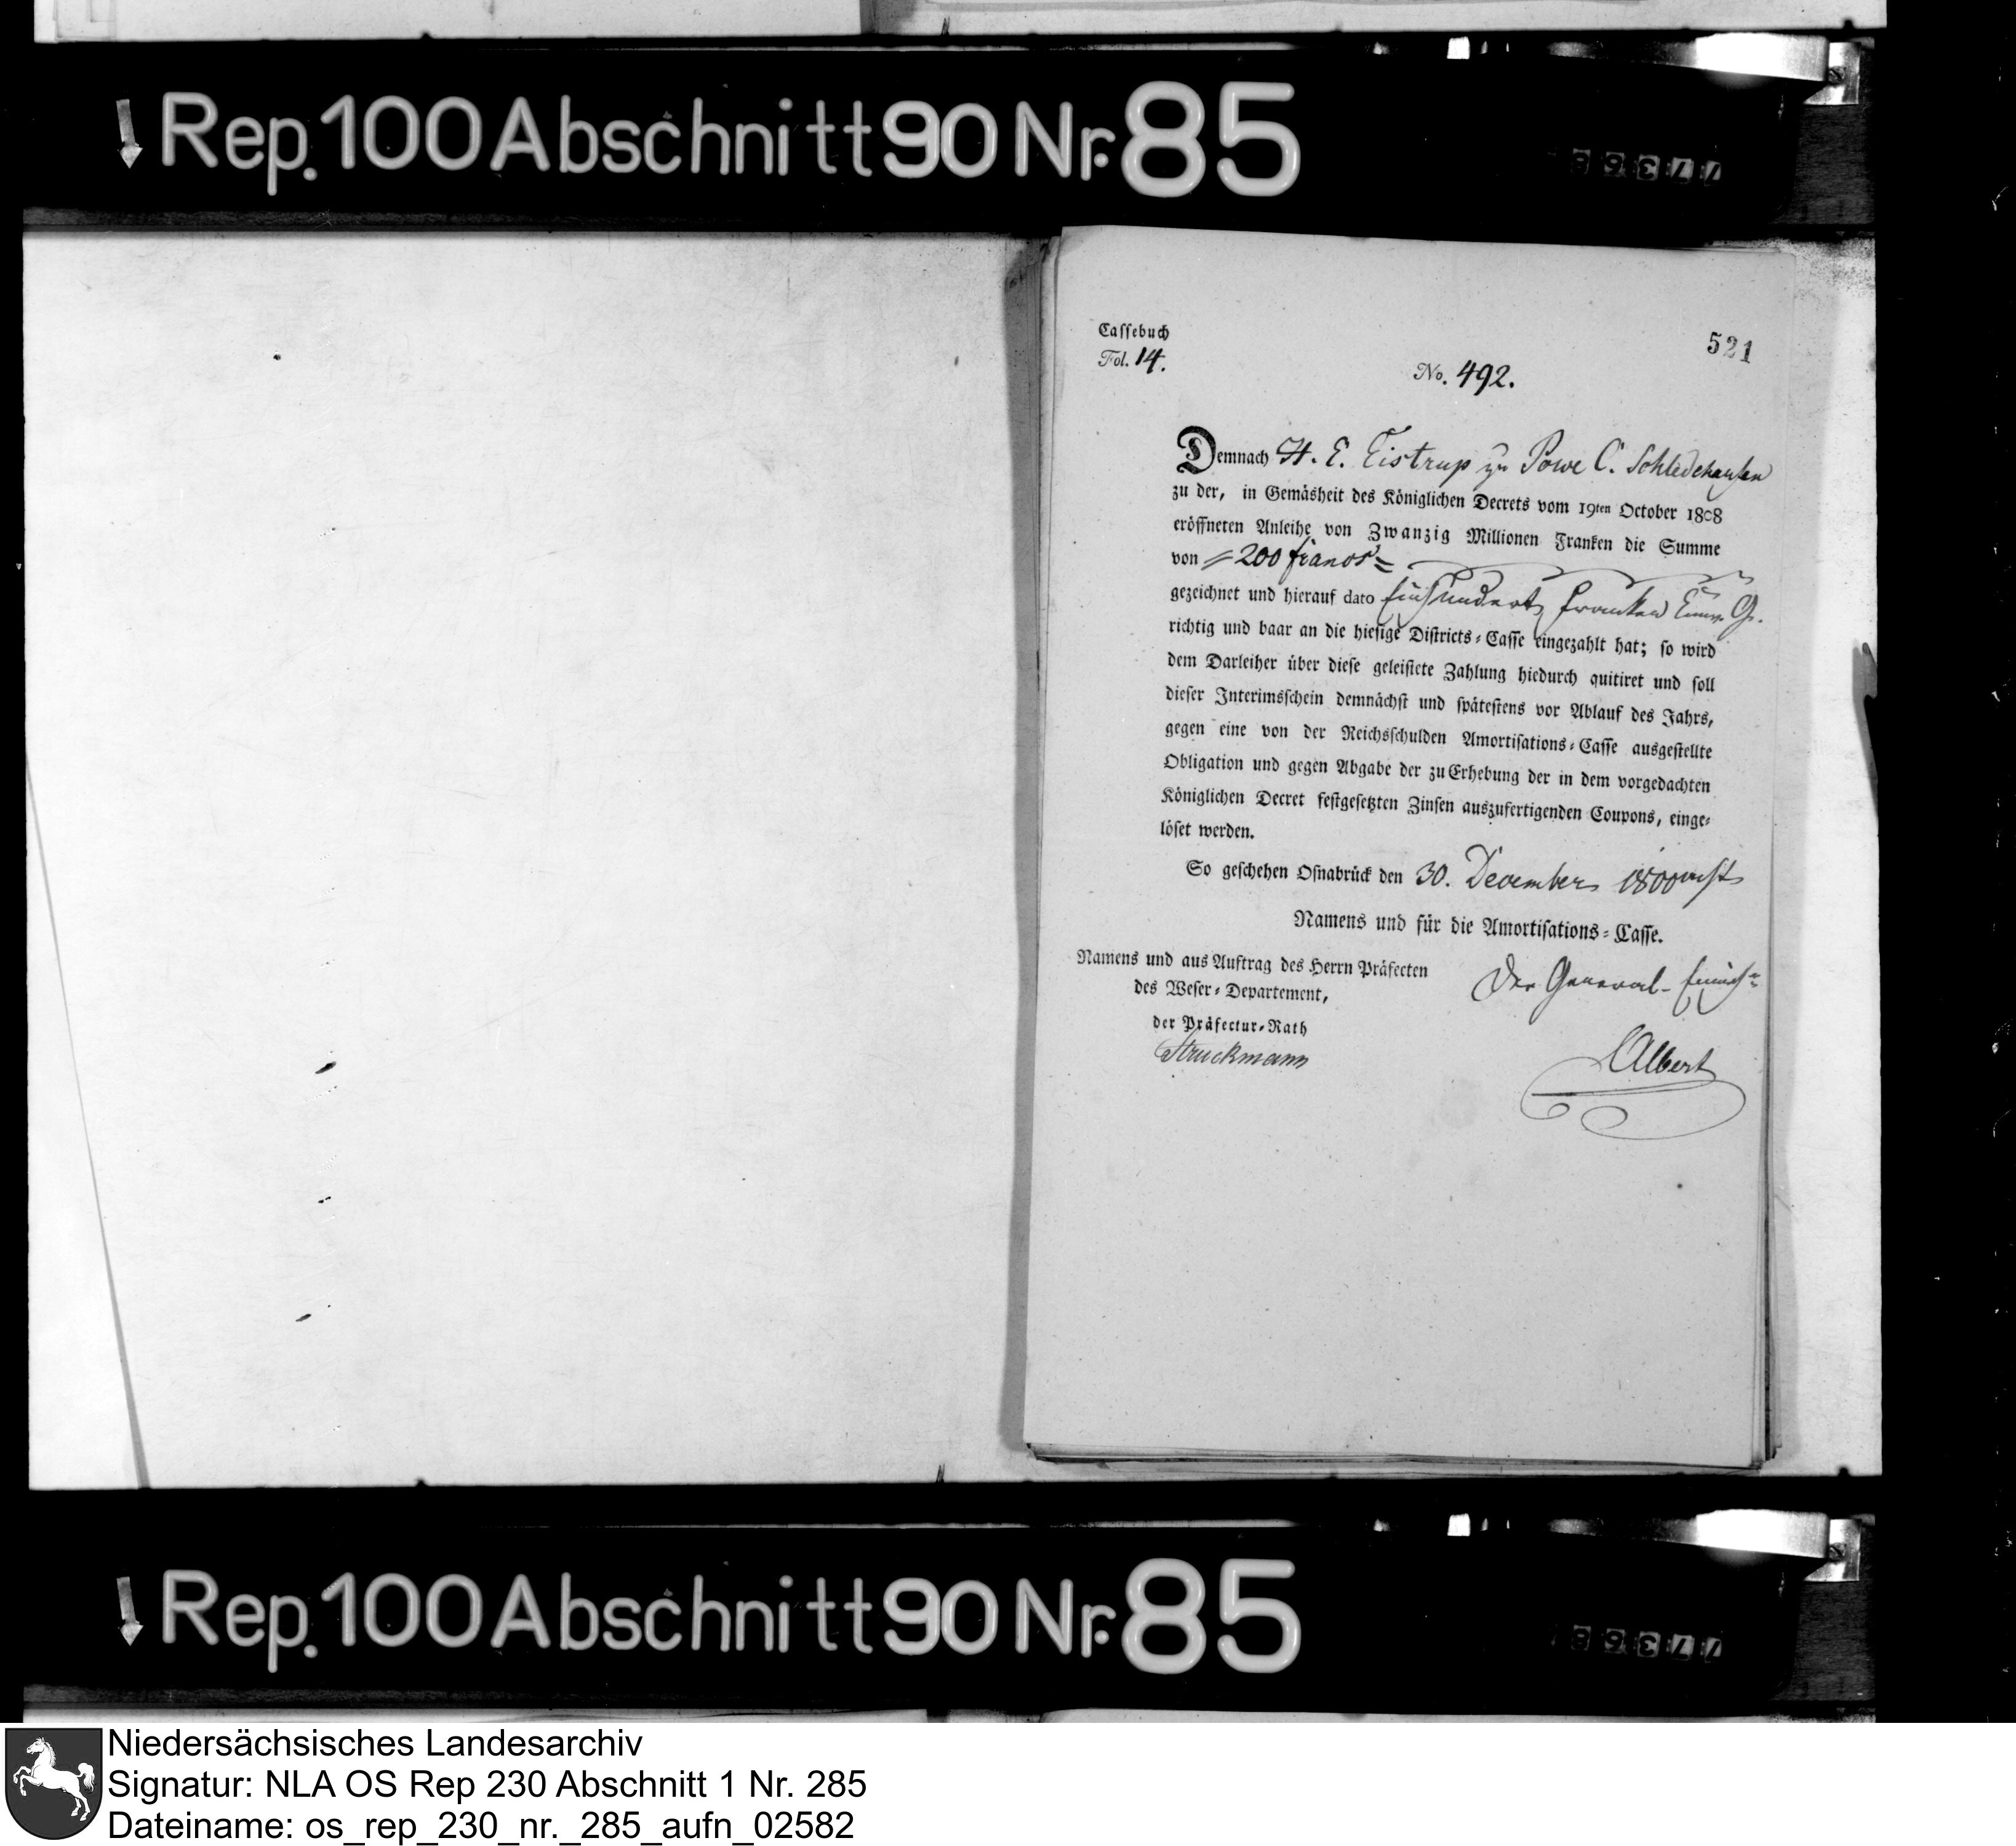 Rep. 100 Abschnitt 90 Nr. 85
Cassebuch
Fol. 14.
521
No. 492.
Demnach H. E. Eistrup zu Powe C. Schledehausen
zu der, in Gemäsheit des Königlichen Decrets vom 19ten October 1808
eröffneten Anleihe von Zwanzig Millionen Franken die Summe
von = 200 francs =
gezeichnet und hierauf dato Einhundert Franken
richtig und baar an die hiesige Districts-Casse eingezahlt hat; so wird
dem Darleiher über diese geleistete Zahlung hiedurch quitiret und soll
dieser Interimsschein demnächst und spätestens vor Ablauf des Jahrs,
gegen eine von der Reichsschulden Amortisations-Casse ausgestellte
Obligation und gegen Abgabe der zu Erhebung der in dem vorgedachten
Königlichen Decret festgesetzten Zinsen auszufertigenden Coupons, einge-
löset werden.
So geschehen Osnabrück den 30. December 1800
Namens und für die Amortisations-Casse.
Namens und aus Auftrag des Herrn Präfecten
des Weser-Departement,
der Präfectur-Rath
Struckmann
Der General-
Albert
Rep. 100 Abschnitt 90 Nr. 85
Niedersächsisches Landesarchiv
Signatur: NLA OS Rep 230 Abschnitt 1 Nr. 285
Dateiname: os_rep_230_nr._285_aufn_02582